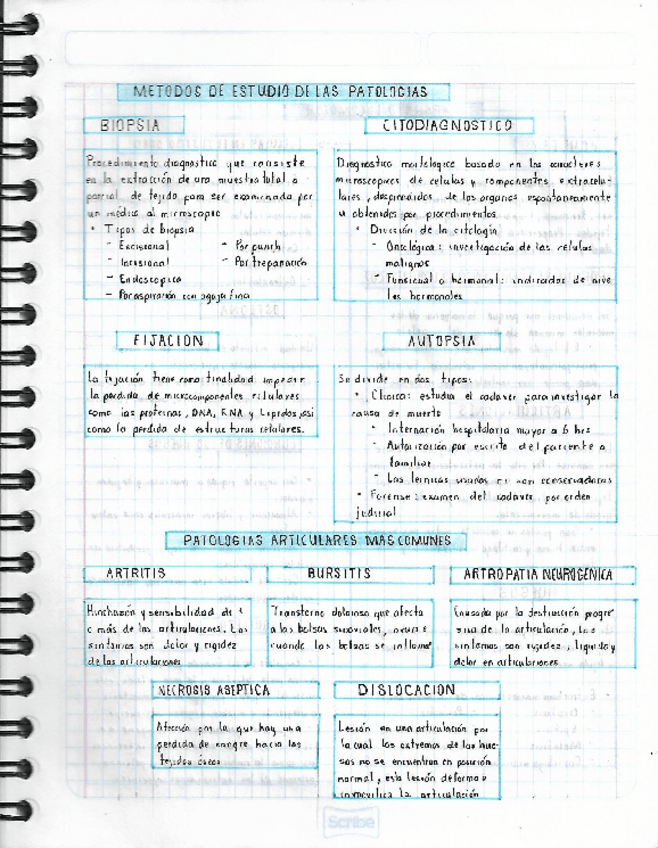 METODOS DE ESTUDIO DE LAS PATOLOGIAS
BIOPSIA
Procedimiento diagnostico que consiste
en la extracción de una muestra total o
parcial de tejido para ser examinada por
un médico al microscopio
• Tipos de biopsia
- Excisional - Por punch
- Incisional - Por trepanación
- Endoscopica
- Por aspiración con aguja fina
CITODIAGNOSTICO
Diagnostico morfologico basado en los caracteres
microscopicos de celulas y componentes extracelu-
lares, desprendidos de los organos espontaneamente
u obtenidos por procedimientos
• División de la citología
- Oncológica: investigación de las células
malignas
- Funcional o hormonal: indicador de nive
les hormonales
FIJACION
La fijación tiene como finalidad impedir
la perdida de microcomponentes celulares
como las proteinas, DNA, RNA y Lipidos, así
como la perdida de estructuras celulares.
AUTOPSIA
Se divide en dos tipos:
• Clinica: estudia el cadaver para investigar la
causa de muerte
• Internación hospitalaria mayor a 6 hrs
- Autorización por escrito del pariente o
familiar
- Las tecnicas usadas son conservadoras
• Forense: examen del cadaver por orden
judicial
PATOLOGIAS ARTICULARES MAS COMUNES
ARTRITIS
Hinchazón y sensibilidad de 1
o más de las articulaciones. Los
sintomas son dolor y rigidez
de las articulaciones
BURSITIS
Transtorno doloroso que afecta
a las bolsas sinoviales, ocurre
cuando las bolsas se inflama
ARTROPATIA NEUROGENICA
Causada por la destrucción progre
siva de la articulación, los
sintomas son rigidez, liquido y
dolor en articulaciones
NECROSIS ASEPTICA
Afección por la que hay una
perdida de sangre hacia los
tejidos óseos
DISLOCACION
Lesión en una articulación por
la cual los extremos de los hue-
sos no se encuentran en posición
normal, esta lesión deforma o
inmoviliza la articulación
Scribe